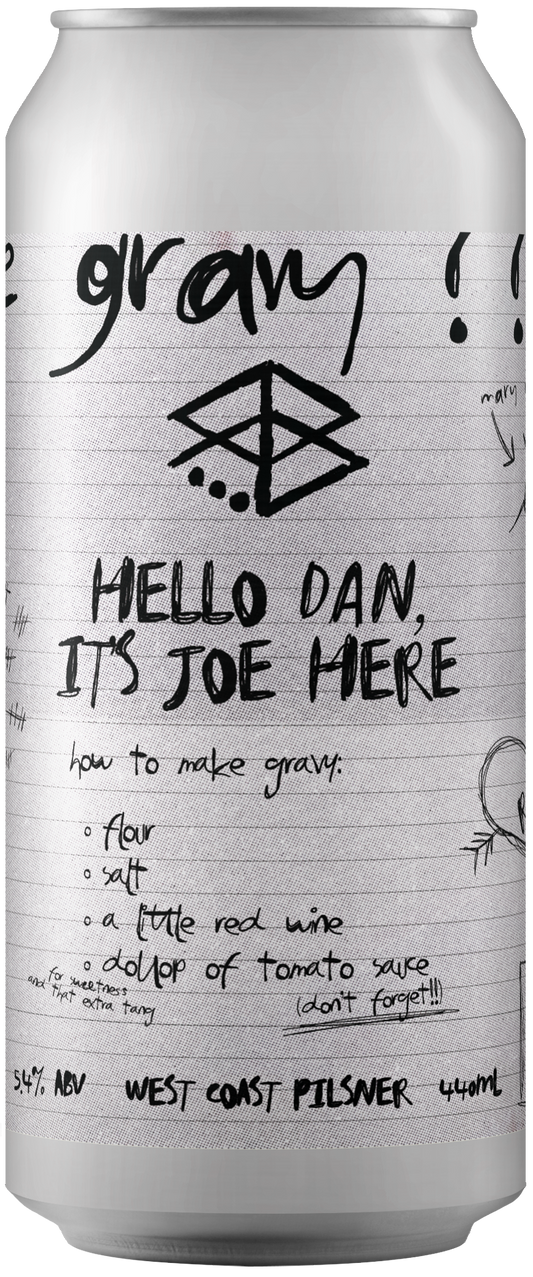 gravy !!
mary
HELLO DAN,
IT'S JOE HERE
how to make gravy:
flour
salt
a little red wine
dollop of tomato sauce
for sweetness
and that extra tang
(don't forget!!)
5.4% ABV WEST COAST PILSNER 440mL